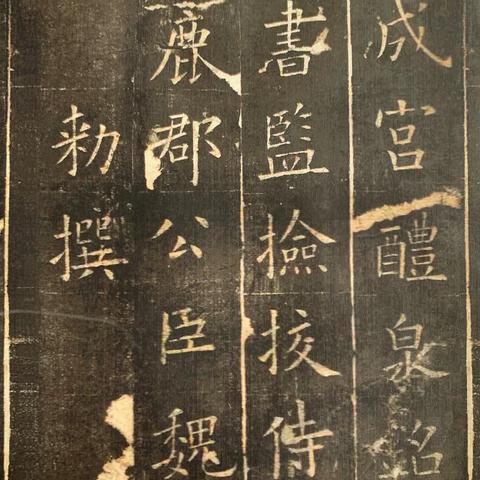 成宮醴泉銘
書監撿挍侍
鹿郡公臣魏
勑撰